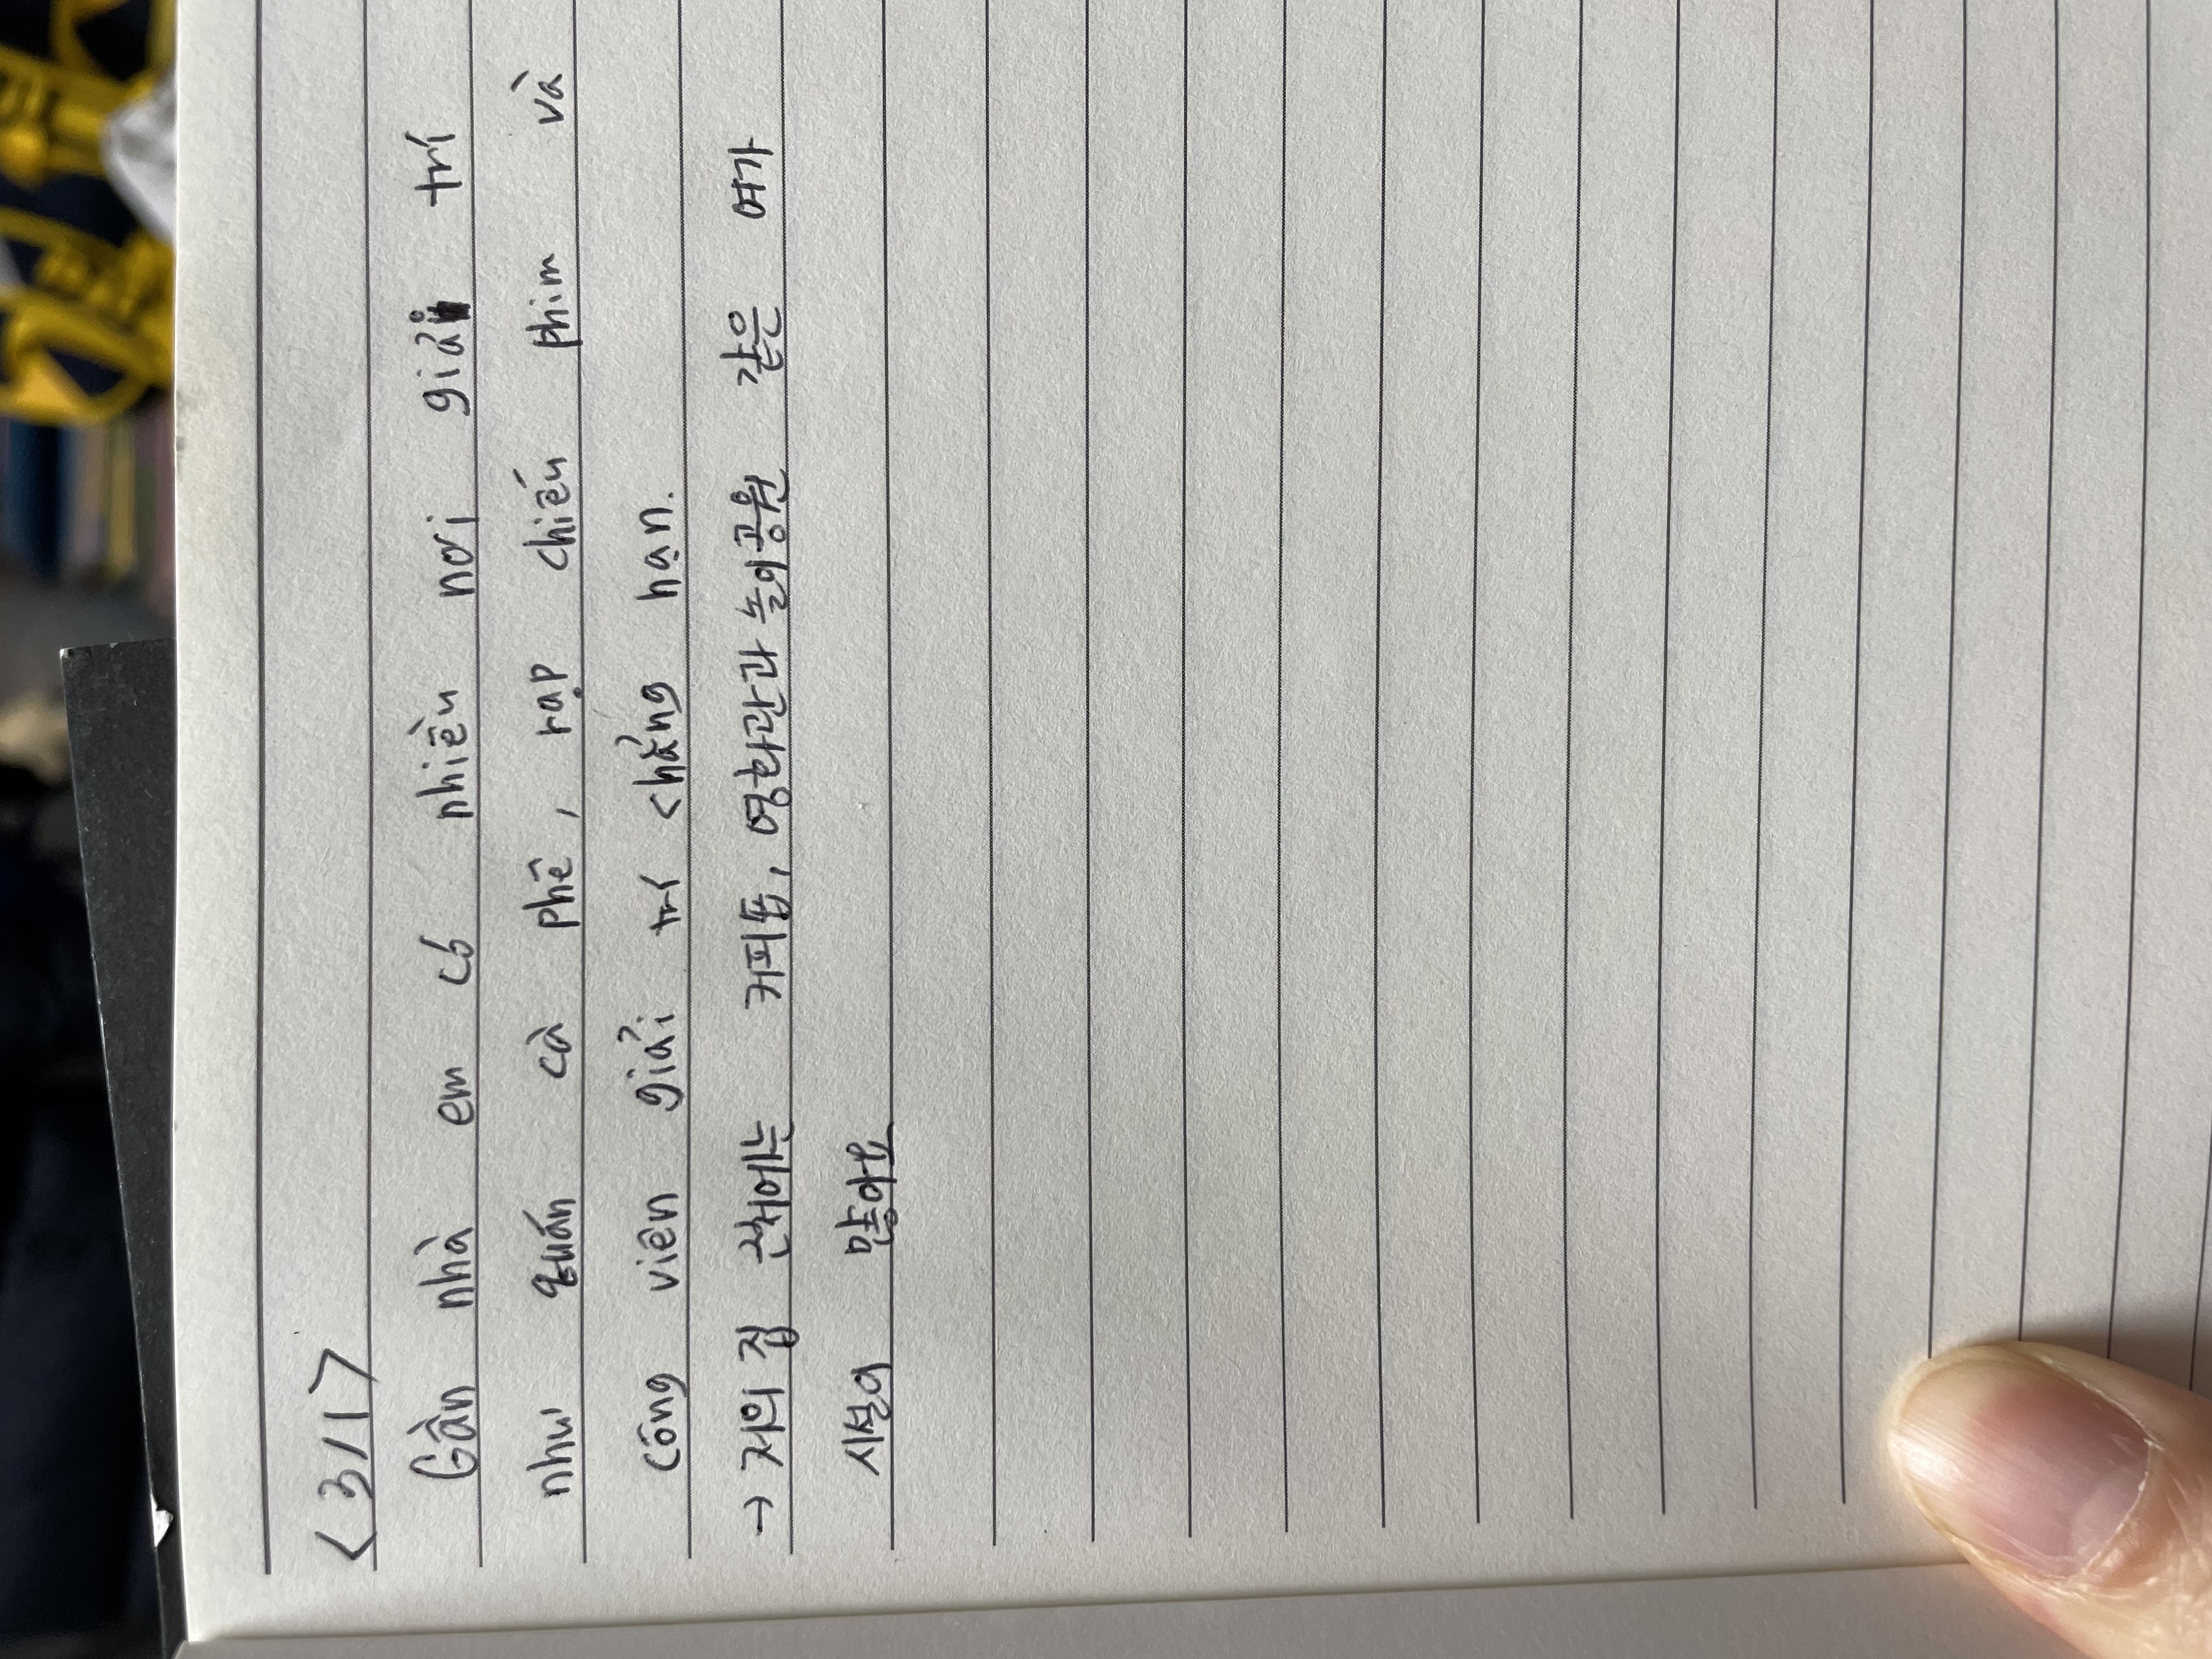 <3/1>
Gần nhà em có nhiều nơi giải trí
như quán cà phê, rạp chiếu phim và
công viên giải trí chẳng hạn.
→ 저의 집 근처에는 커피숍, 영화관과 놀이공원 같은 여가
시설이 많아요